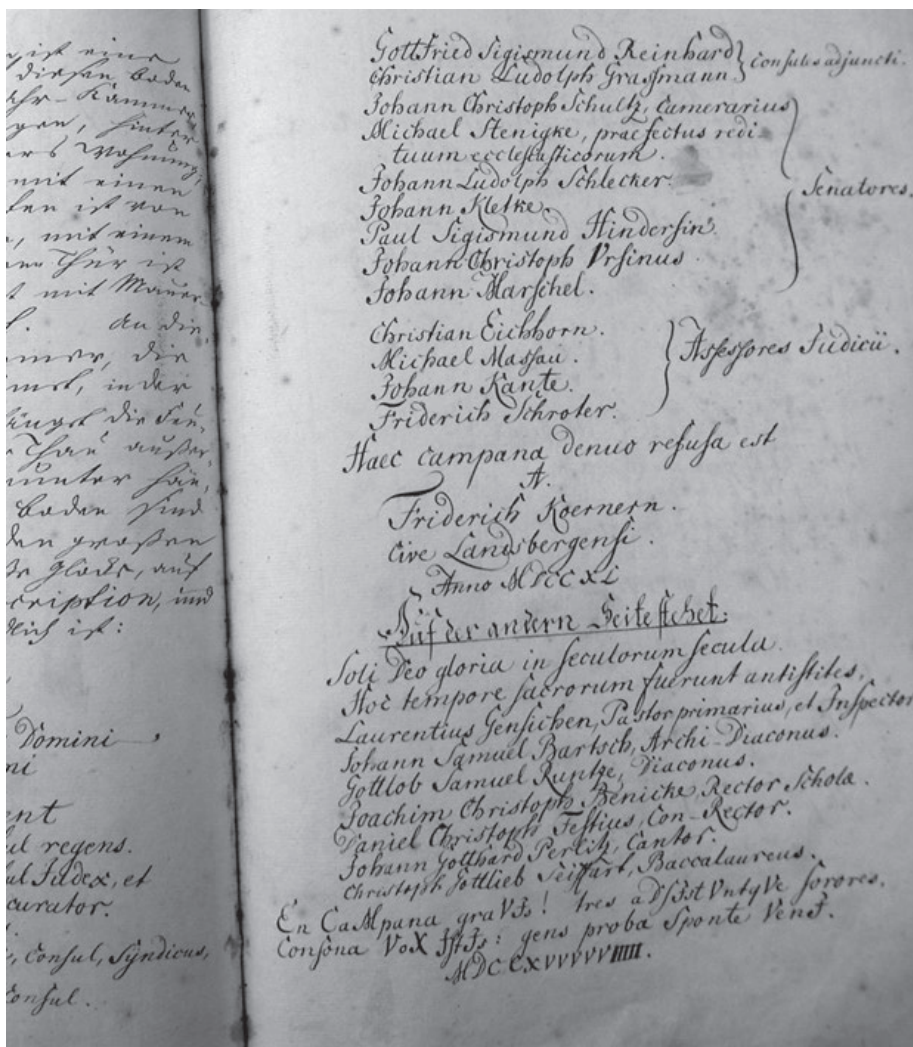 ist eine
diesen boden
Kammer
hinter
Wohnung,
mit einen
ist von
mit einem
Thür ist
mit Mauer
An die
die
in der
längst die Feu-
außer
unter
boden sind
den großen
Glocke, auf
cription, und
lich ist:
Domini
ni
ent
ul regens.
al Judex, et
curator.
, Consul, Syndicus,
Consul.
Gottfried Sigismund Reinhard
Christian Ludolph Grassmann } Consules adjuncti.
Johann Christoph Schultz, Camerarius
Michael Stenigke, praefectus redi-
tuum ecclesiasticorum.
Johann Ludolph Schlecker.
Johann Kletke.
Paul Sigismund Hindersin.
Johann Christoph Vrsinus.
Johann Marschel.
} Senatores.
Christian Eichhorn.
Michael Massau.
Johann Kante.
Friderich Schroter.
} Assessores Judicii.
Haec campana denuo refusa est
A.
Friderich Koernern.
Cive Landsbergensi.
Anno MDCCXL
Auf der andern Seite stehet:
Soli Deo gloria in seculorum secula.
Hoc tempore sacrorum fuerunt antistites.
Laurentius Gensichen, Pastor primarius, et Inspector
Johann Samuel Bartsch, Archi-Diaconus.
Gottlob Samuel Runtze, Diaconus.
Joachim Christoph Benicke, Rector Scholæ.
Daniel Christoph Festius, Con-Rector.
Johann Gotthard Perlitz, Cantor.
Christoph Gottlieb Seiffart, Baccalaureus.
En CaMpana graVIs! tres aDsIstVntqVe sorores.
Consona VoX IstIs: gens proba sponte VenI.
MDCCXVVVVVIIIII.